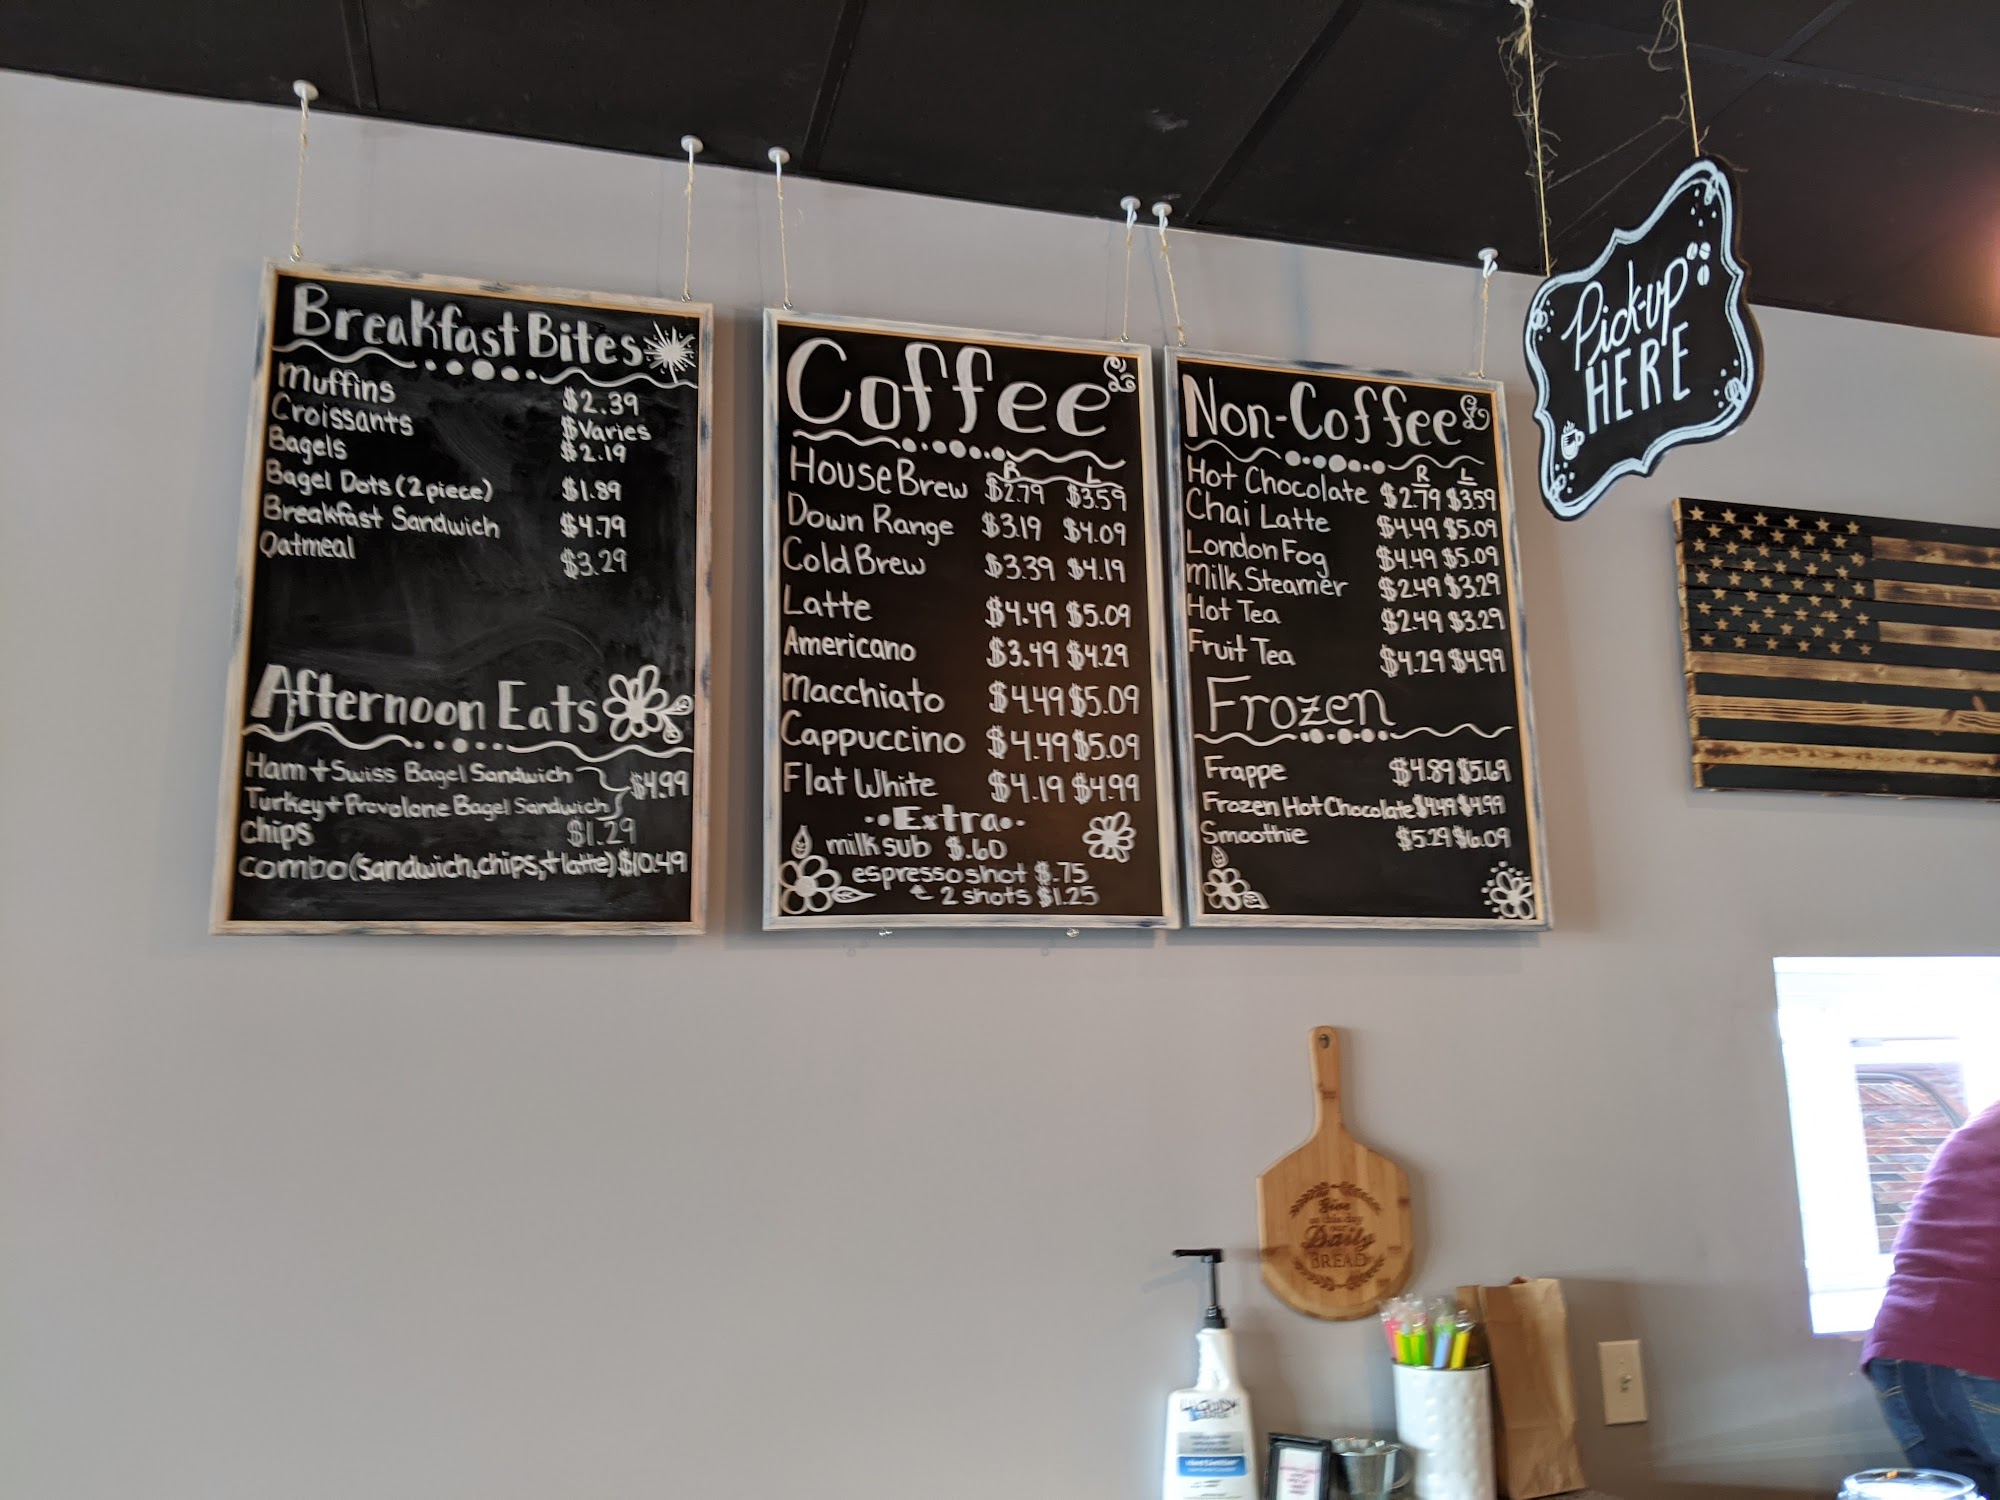 Breakfast Bites
Muffins $2.39
Croissants $Varies
Bagels $2.19
Bagel Dots (2 piece) $1.89
Breakfast Sandwich $4.79
Oatmeal $3.29
Afternoon Eats
Ham + Swiss Bagel Sandwich $4.99
Turkey + Provolone Bagel Sandwich
Chips $1.29
combo (sandwich, chips, + latte) $10.49
Coffee
R L
House Brew $2.79 $3.59
Down Range $3.19 $4.09
Cold Brew $3.39 $4.19
Latte $4.49 $5.09
Americano $3.49 $4.29
Macchiato $4.49 $5.09
Cappuccino $4.49 $5.09
Flat White $4.19 $4.99
Extra
milk sub $.60
espresso shot $.75
2 shots $1.25
Non-Coffee
R L
Hot Chocolate $2.79 $3.59
Chai Latte $4.49 $5.09
London Fog $4.49 $5.09
Milk Steamer $2.49 $3.29
Hot Tea $2.49 $3.29
Fruit Tea $4.29 $4.99
Frozen
Frappe $4.89 $5.69
Frozen Hot Chocolate $4.49 $4.99
Smoothie $5.29 $6.09
Pick-up
HERE
Give
us this day
our
Daily
BREAD